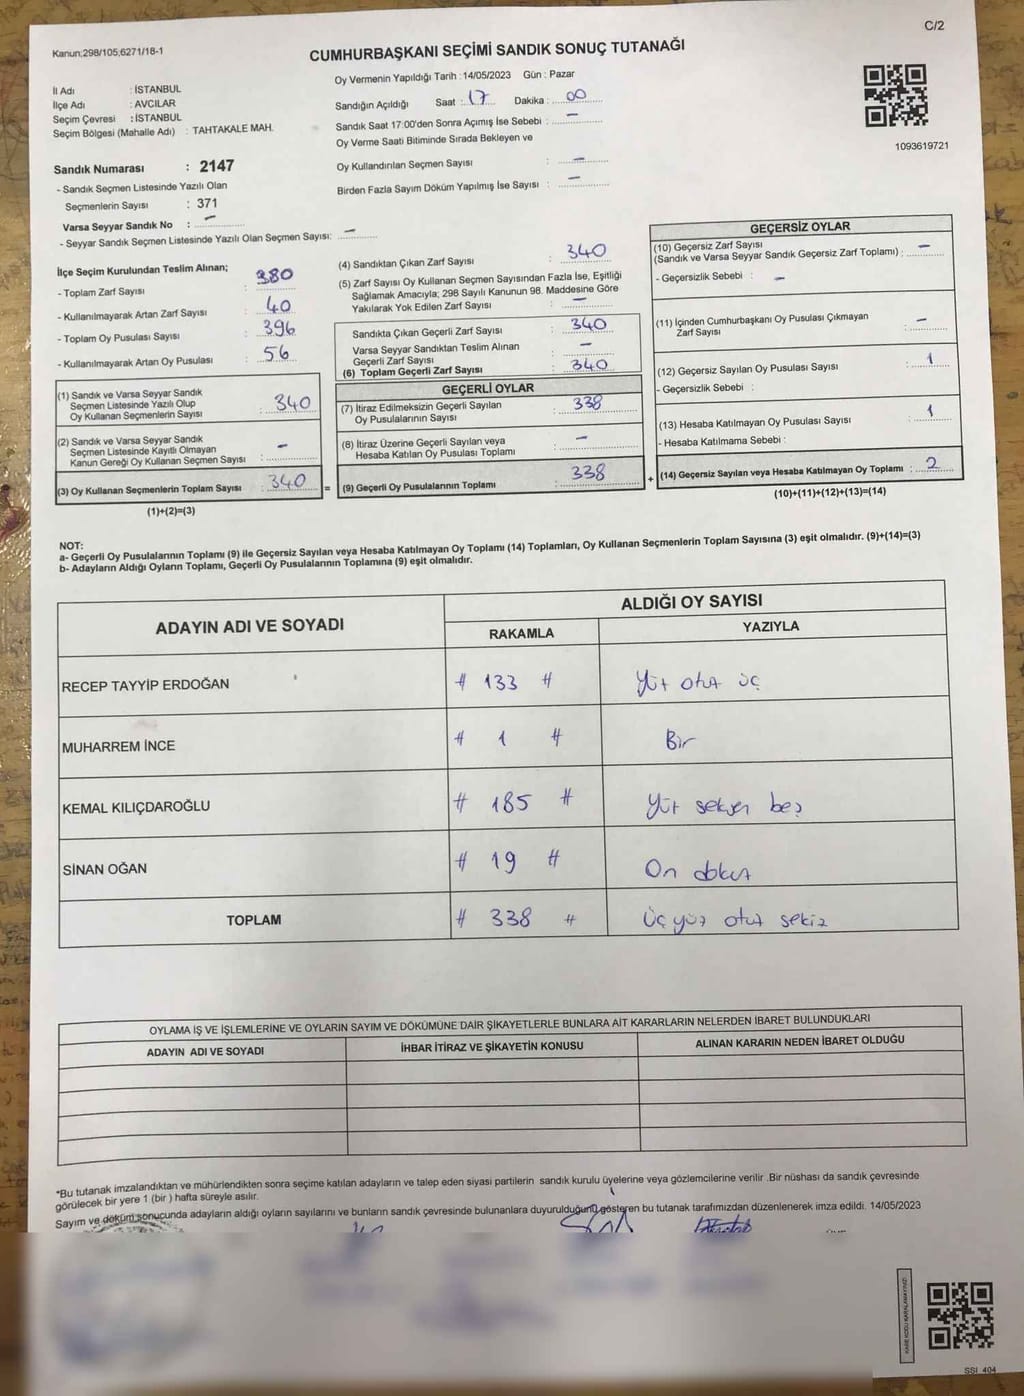 Kanun;298/105;6271/18-1
C/2
CUMHURBAŞKANI SEÇİMİ SANDIK SONUÇ TUTANAĞI
İl Adı : İSTANBUL
İlçe Adı : AVCILAR
Seçim Çevresi : İSTANBUL
Seçim Bölgesi (Mahalle Adı) : TAHTAKALE MAH.
Sandık Numarası : 2147
- Sandık Seçmen Listesinde Yazılı Olan
Seçmenlerin Sayısı : 371
Varsa Seyyar Sandık No : -
- Seyyar Sandık Seçmen Listesinde Yazılı Olan Seçmen Sayısı: -
Oy Vermenin Yapıldığı Tarih : 14/05/2023 Gün : Pazar
Sandığın Açıldığı Saat : 17 Dakika : 00
Sandık Saat 17:00'den Sonra Açımış İse Sebebi : -
Oy Verme Saati Bitiminde Sırada Bekleyen ve
Oy Kullandırılan Seçmen Sayısı : -
Birden Fazla Sayım Döküm Yapılmış İse Sayısı : -
1093619721
İlçe Seçim Kurulundan Teslim Alınan;
- Toplam Zarf Sayısı : 380
- Kullanılmayarak Artan Zarf Sayısı : 40
- Toplam Oy Pusulası Sayısı : 396
- Kullanılmayarak Artan Oy Pusulası : 56
(1) Sandık ve Varsa Seyyar Sandık
Seçmen Listesinde Yazılı Olup
Oy Kullanan Seçmenlerin Sayısı : 340
(2) Sandık ve Varsa Seyyar Sandık
Seçmen Listesinde Kayıtlı Olmayan
Kanun Gereği Oy Kullanan Seçmen Sayısı : -
(3) Oy Kullanan Seçmenlerin Toplam Sayısı : 340 =
(1)+(2)=(3)
(4) Sandıktan Çıkan Zarf Sayısı : 340
(5) Zarf Sayısı Oy Kullanan Seçmen Sayısından Fazla İse, Eşitliği
Sağlamak Amacıyla; 298 Sayılı Kanunun 98. Maddesine Göre
Yakılarak Yok Edilen Zarf Sayısı : -
Sandıkta Çıkan Geçerli Zarf Sayısı : 340
Varsa Seyyar Sandıktan Teslim Alınan
Geçerli Zarf Sayısı : -
(6) Toplam Geçerli Zarf Sayısı : 340
GEÇERLİ OYLAR
(7) İtiraz Edilmeksizin Geçerli Sayılan
Oy Pusulalarının Sayısı : 338
(8) İtiraz Üzerine Geçerli Sayılan veya
Hesaba Katılan Oy Pusulası Toplamı : -
(9) Geçerli Oy Pusulalarının Toplamı : 338 +
GEÇERSİZ OYLAR
(10) Geçersiz Zarf Sayısı
(Sandık ve Varsa Seyyar Sandık Geçersiz Zarf Toplamı) : -
- Geçersizlik Sebebi : -
(11) İçinden Cumhurbaşkanı Oy Pusulası Çıkmayan
Zarf Sayısı : -
(12) Geçersiz Sayılan Oy Pusulası Sayısı : 1
- Geçersizlik Sebebi :
(13) Hesaba Katılmayan Oy Pusulası Sayısı : 1
- Hesaba Katılmama Sebebi :
(14) Geçersiz Sayılan veya Hesaba Katılmayan Oy Toplamı : 2
(10)+(11)+(12)+(13)=(14)
NOT:
a- Geçerli Oy Pusulalarının Toplamı (9) ile Geçersiz Sayılan veya Hesaba Katılmayan Oy Toplamı (14) Toplamları, Oy Kullanan Seçmenlerin Toplam Sayısına (3) eşit olmalıdır. (9)+(14)=(3)
b- Adayların Aldığı Oyların Toplamı, Geçerli Oy Pusulalarının Toplamına (9) eşit olmalıdır.
ADAYIN ADI VE SOYADI
ALDIĞI OY SAYISI
RAKAMLA YAZIYLA
RECEP TAYYİP ERDOĞAN # 133 # Yüz otuz üç
MUHARREM İNCE # 1 # Bir
KEMAL KILIÇDAROĞLU # 185 # Yüz seksen beş
SİNAN OĞAN # 19 # On dokuz
TOPLAM # 338 # Üç yüz otuz sekiz
OYLAMA İŞ VE İŞLEMLERİNE VE OYLARIN SAYIM VE DÖKÜMÜNE DAİR ŞİKAYETLERLE BUNLARA AİT KARARLARIN NELERDEN İBARET BULUNDUKLARI
ADAYIN ADI VE SOYADI İHBAR İTİRAZ VE ŞİKAYETİN KONUSU ALINAN KARARIN NEDEN İBARET OLDUĞU
*Bu tutanak imzalandıktan ve mühürlendikten sonra seçime katılan adayların ve talep eden siyasi partilerin sandık kurulu üyelerine veya gözlemcilerine verilir .Bir nüshası da sandık çevresinde
görülecek bir yere 1 (bir ) hafta süreyle asılır.
Sayım ve döküm sonucunda adayların aldığı oyların sayılarını ve bunların sandık çevresinde bulunanlara duyurulduğunu gösteren bu tutanak tarafımızdan düzenlenerek imza edildi. 14/05/2023
KARE KODU KARALAMAYINIZ!
SSI_404